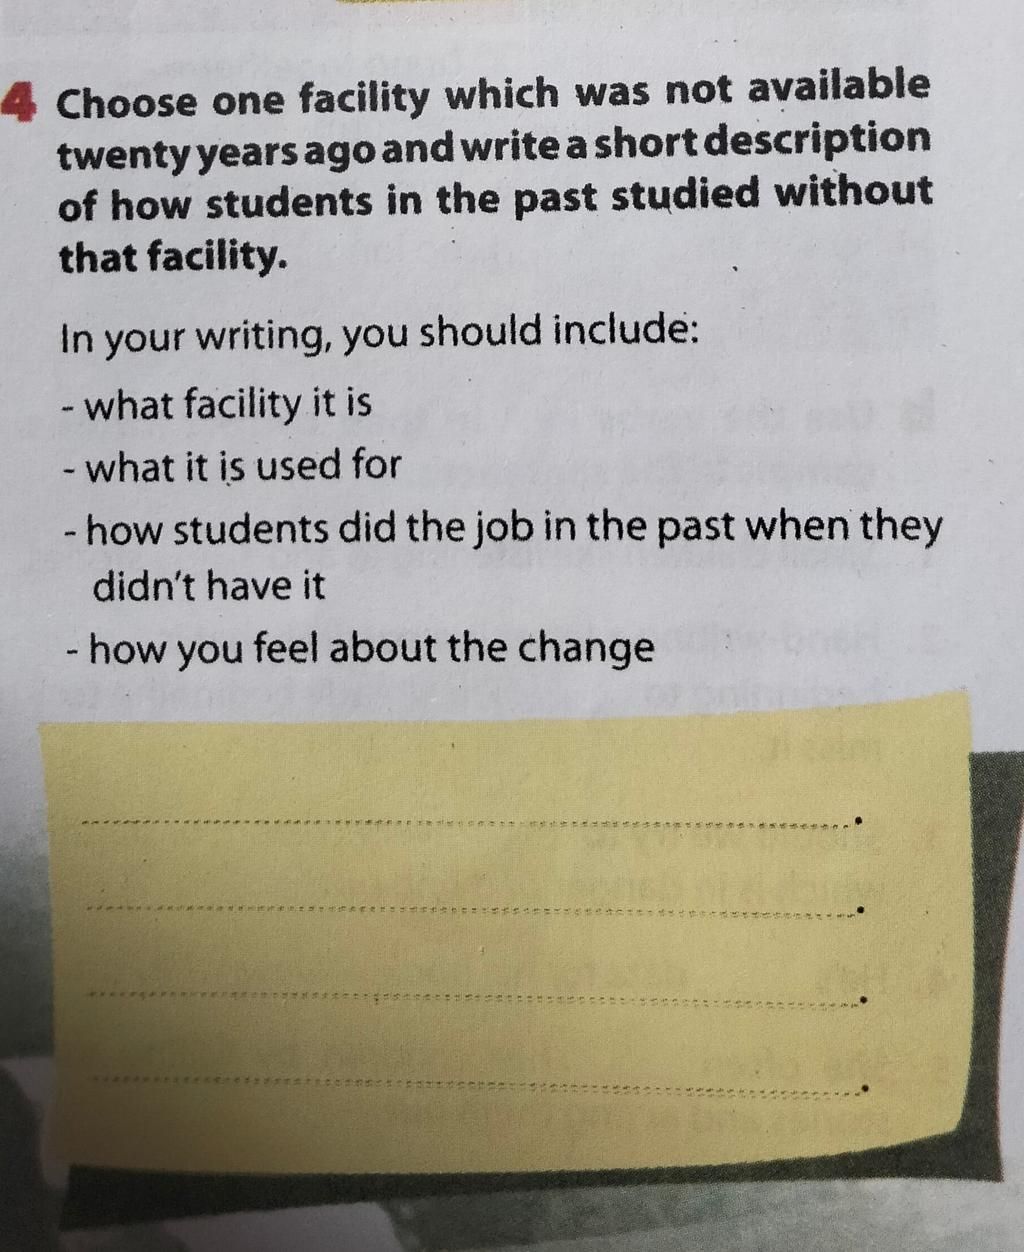 4 Choose one facility which was not available
twenty years ago and write a short description
of how students in the past studied without
that facility.
In your writing, you should include:
- what facility it is
- what it is used for
- how students did the job in the past when they
didn't have it
- how you feel about the change